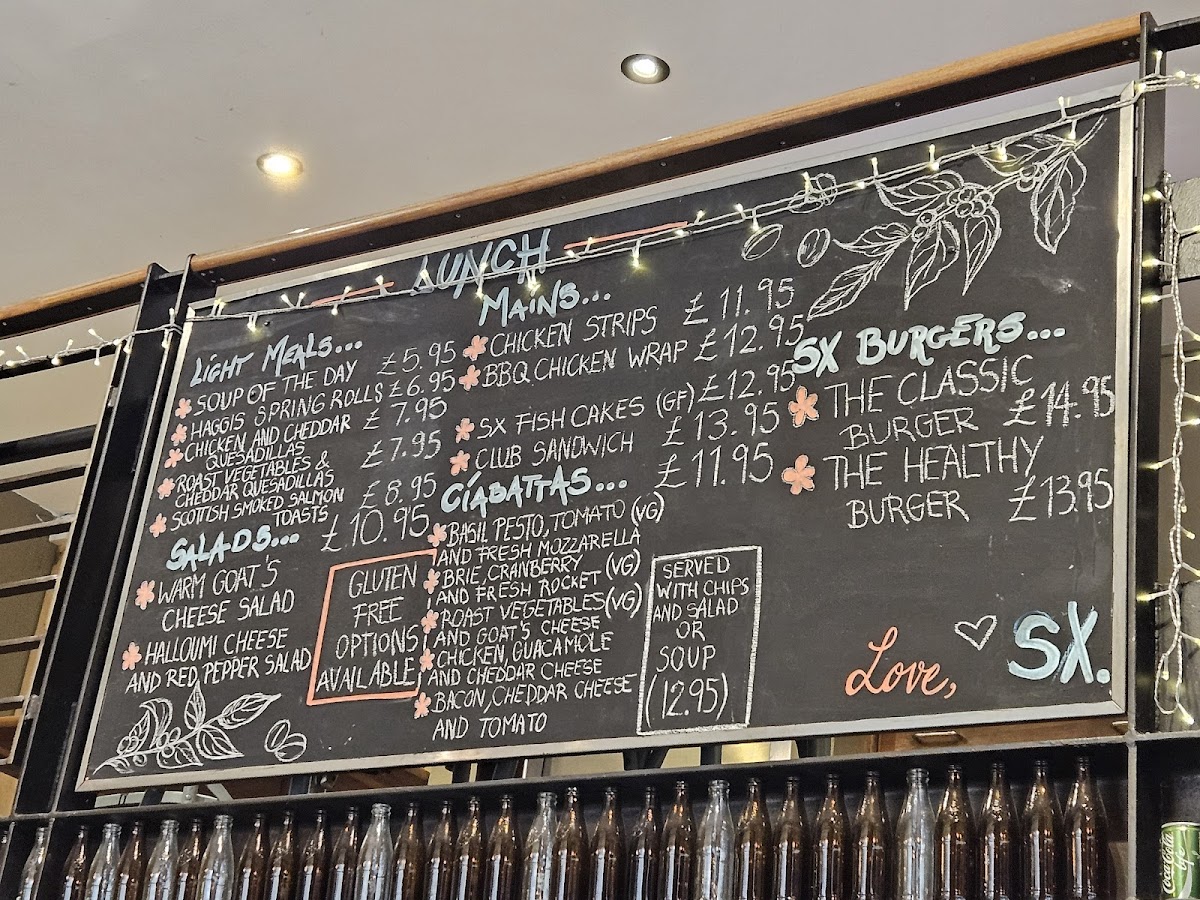 LUNCH
LIGHT MEALS...
SOUP OF THE DAY £5.95
HAGGIS SPRING ROLLS £6.95
CHICKEN AND CHEDDAR £7.95
QUESADILLAS
ROAST VEGETABLES & £7.95
CHEDDAR QUESADILLAS
SCOTTISH SMOKED SALMON £8.95
TOASTS
SALADS... £10.95
WARM GOAT'S
CHEESE SALAD
HALLOUMI CHEESE
AND RED PEPPER SALAD
GLUTEN
FREE
OPTIONS
AVAILABLE
MAINS...
CHICKEN STRIPS £11.95
BBQ CHICKEN WRAP £12.95
SX FISH CAKES (GF) £12.95
CLUB SANDWICH £13.95
CIABATTAS... £11.95
BASIL PESTO, TOMATO (VG)
AND FRESH MOZZARELLA
BRIE, CRANBERRY (VG)
AND FRESH ROCKET
ROAST VEGETABLES (VG)
AND GOAT'S CHEESE
CHICKEN, GUACAMOLE
AND CHEDDAR CHEESE
BACON, CHEDDAR CHEESE
AND TOMATO
SERVED
WITH CHIPS
AND SALAD
OR
SOUP
(12.95)
SX BURGERS...
THE CLASSIC
BURGER £14.95
THE HEALTHY
BURGER £13.95
Love,
SX.
Coca-Cola
Life